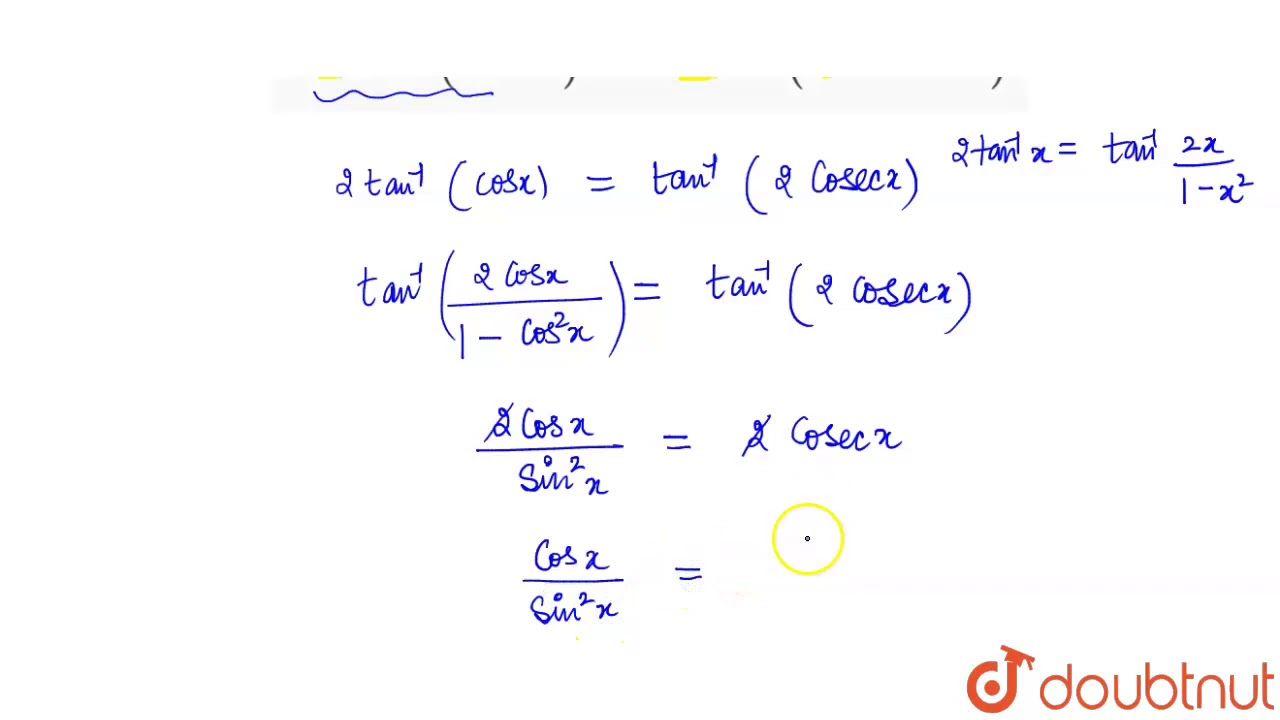 2 tan⁻¹ (cosx) = tan⁻¹ (2 Cosecx)
2tan⁻¹x = tan⁻¹ 2x / 1-x²
tan⁻¹ (2 Cosx / 1 - Cos²x) = tan⁻¹ (2 Cosecx)
2 Cosx / Sin²x = 2 Cosecx
Cosx / Sin²x =
doubtnut